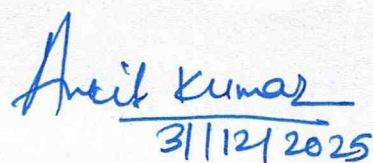 Ankit Kumar
31/12/2025